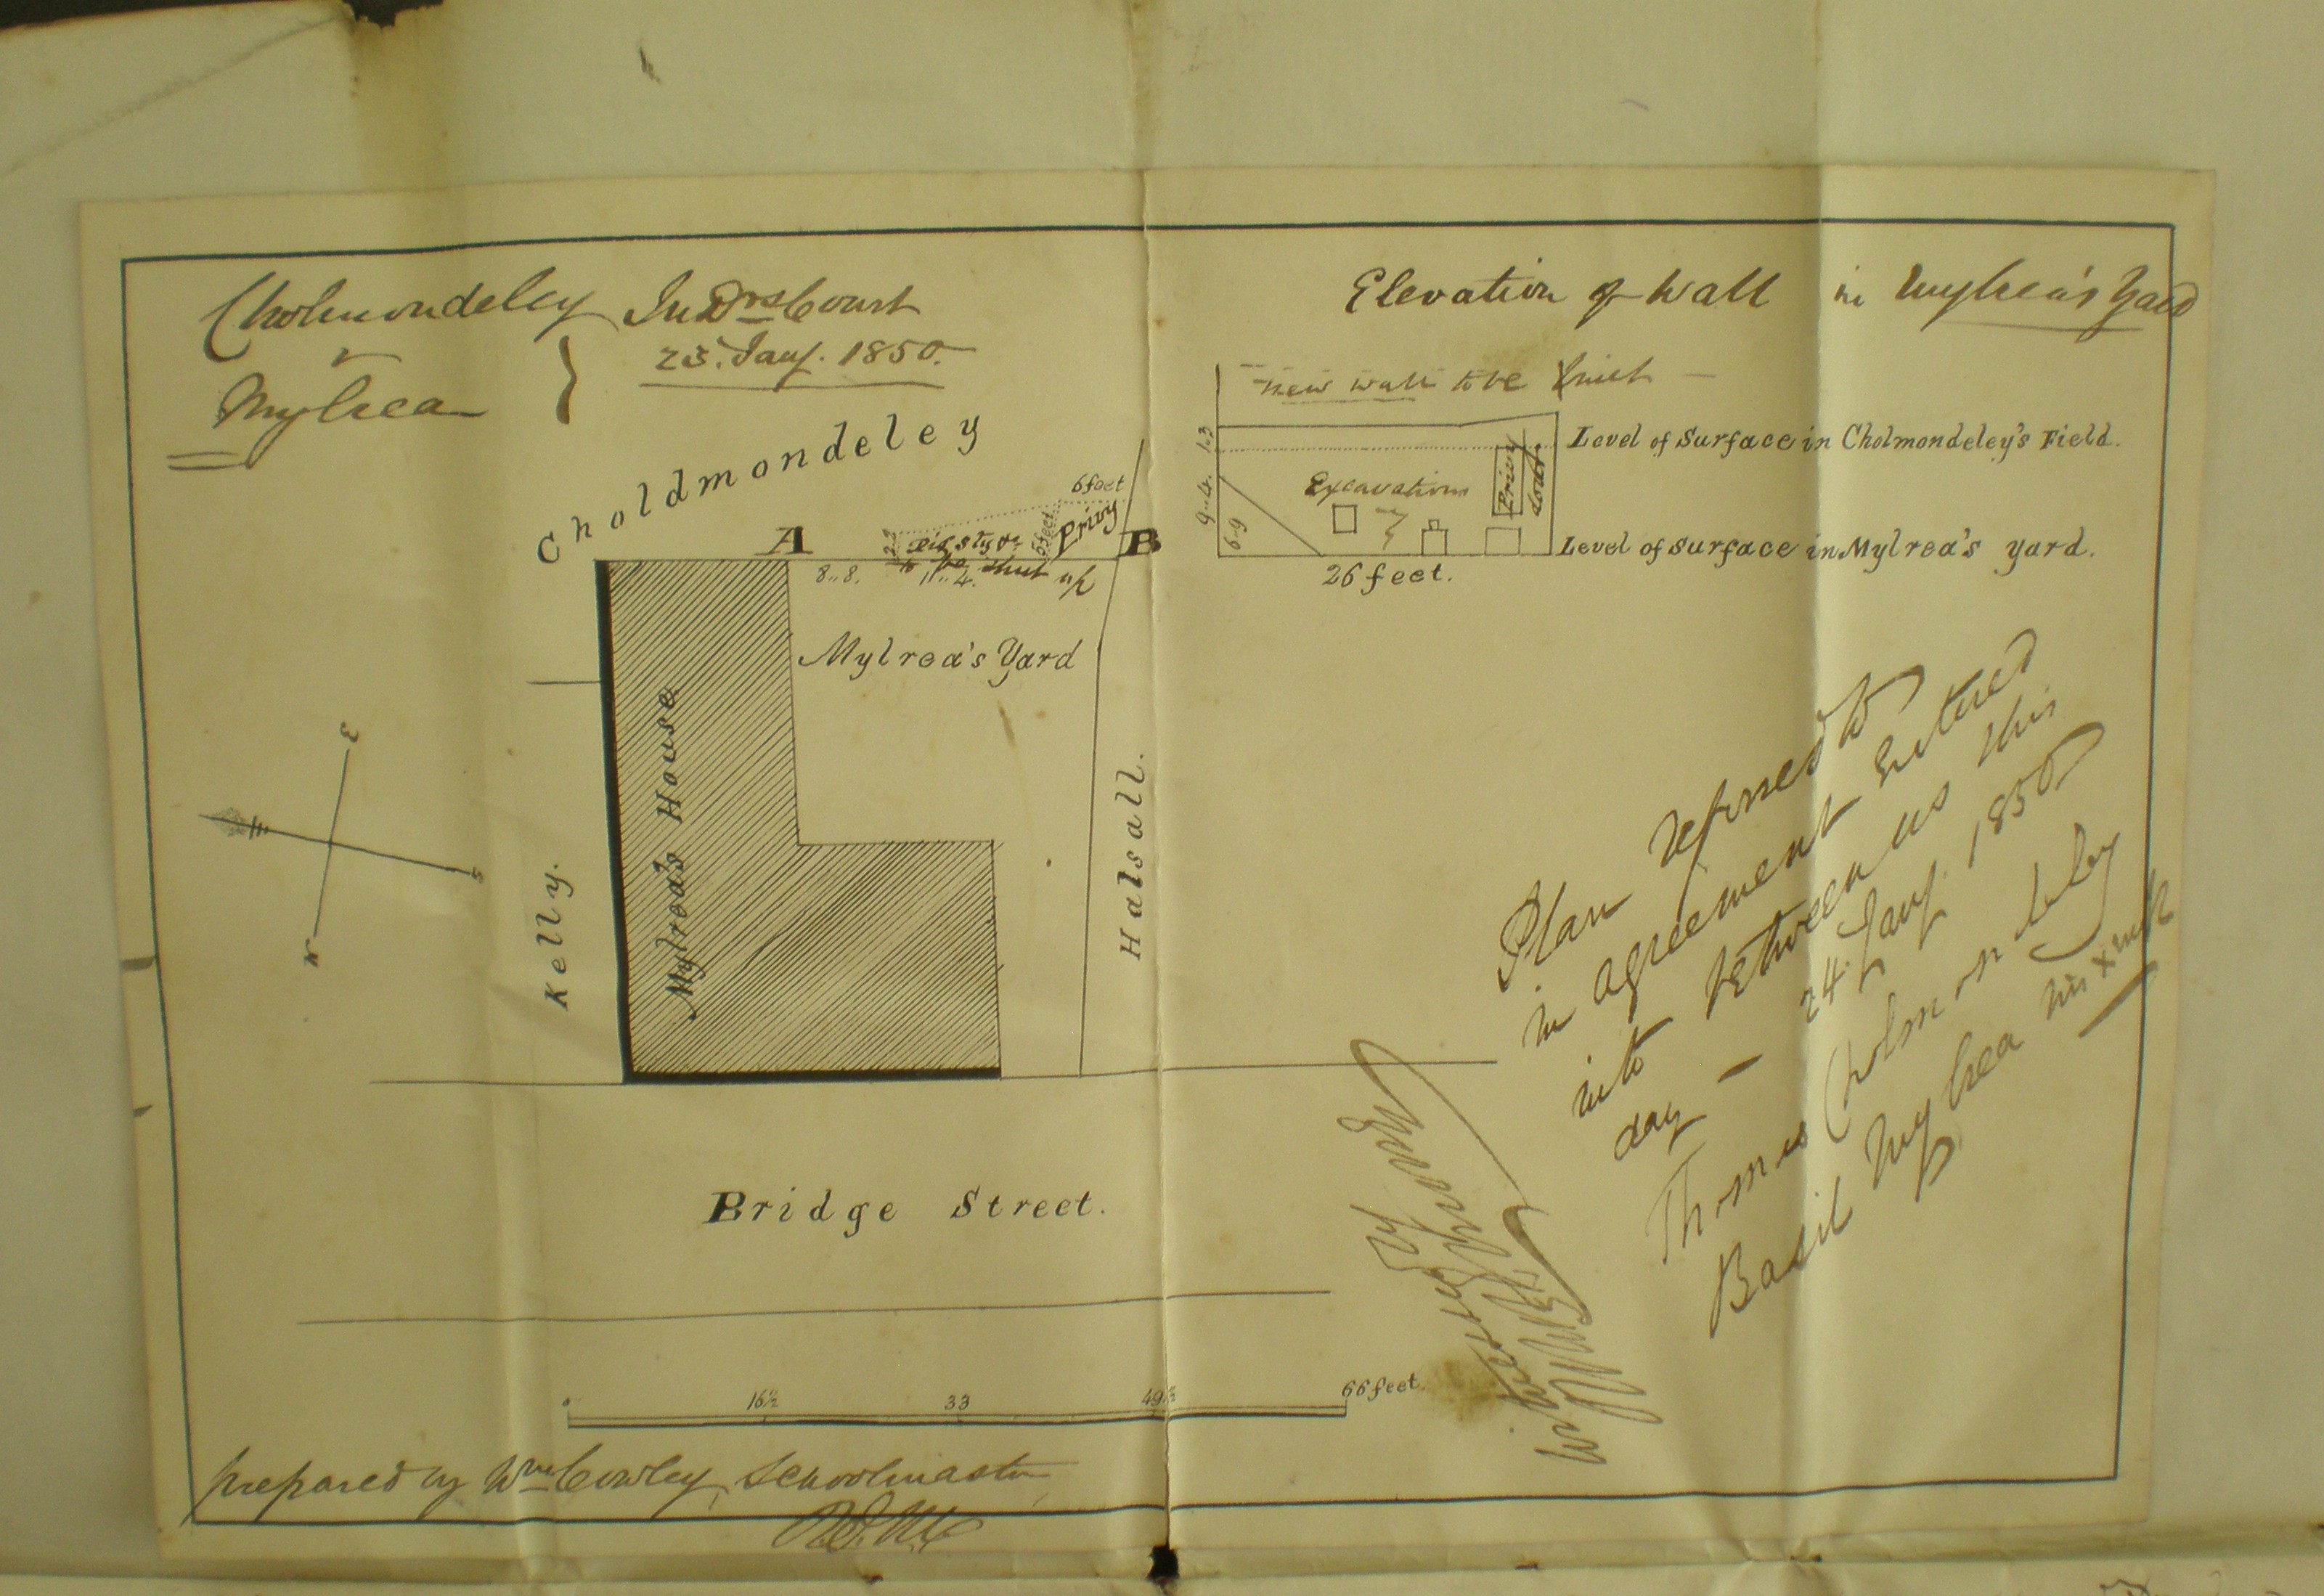 Cholmondeley
v
Mylrea
In Drs Court
23. Jany. 1850.
Choldmondeley
6 feet
A
Pig stye
6 feet
Privy
B
to be shut up
8..8.
11..4.
Mylrea's Yard
Mylrea's House
Kelly.
Halsall.
E
S
W
Bridge Street.
0
16½
33
49½
66 feet.
prepared by Wm Cowley, Schoolmaster
Elevation of Wall in Mylrea's Yard
new wall to be built
1..3
Level of Surface in Cholmondeley's Field.
9..4.
6..9
Excavations
Privy
door.
Level of Surface in Mylrea's yard.
26 feet.
Plan referred to
in agreement Entered
into between us this
day — 24 Jany. 1850
Thomas Cholmondeley
Basil Mylrea his x mark
Witnessed by